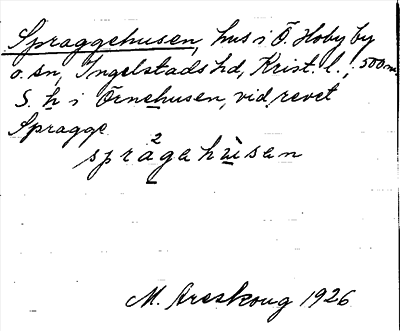 Spraggehusen, hus i Ö. Hoby by
o. sn, Ingelstads hd, Krist. l., 500 m.
S. h i Örnehusen, vid revet
Spragge.
2
sprągahùsan
M. Areskoug 1926